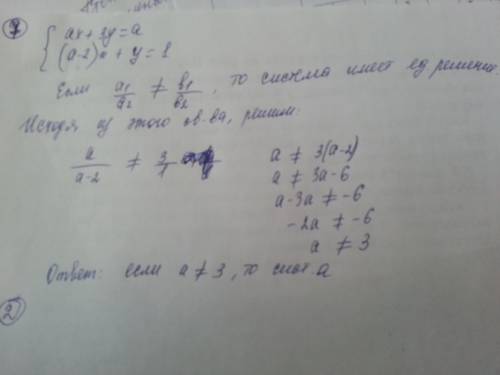 1
{ ax + 3y = a
(a-2)x + y = 1
Если a1/a2 ≠ b1/b2, то система имеет ед. решение.
Исходя из этого св-ва, решим:
a/(a-2) ≠ 3/1
a ≠ 3(a-2)
a ≠ 3a-6
a-3a ≠ -6
-2a ≠ -6
a ≠ 3
Ответ: если a ≠ 3, то сист.
2